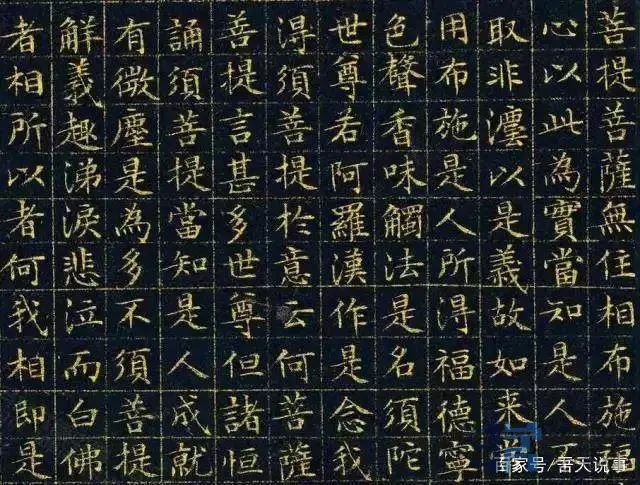 菩提菩薩無住相布施福
心以此為實當知是人不
取非灋以是義故如来
用布施是人所淂福德寧
色聲香味觸法是名須陀
世尊若阿羅漢作是念我
淂須菩提扵意云何菩薩
菩提言甚多世尊但諸恒
誦須菩提當知是人成就
有微塵是為多不須菩提
解義趣涕淚悲泣而白佛
者相所以者何我相即是
百家号/天说事